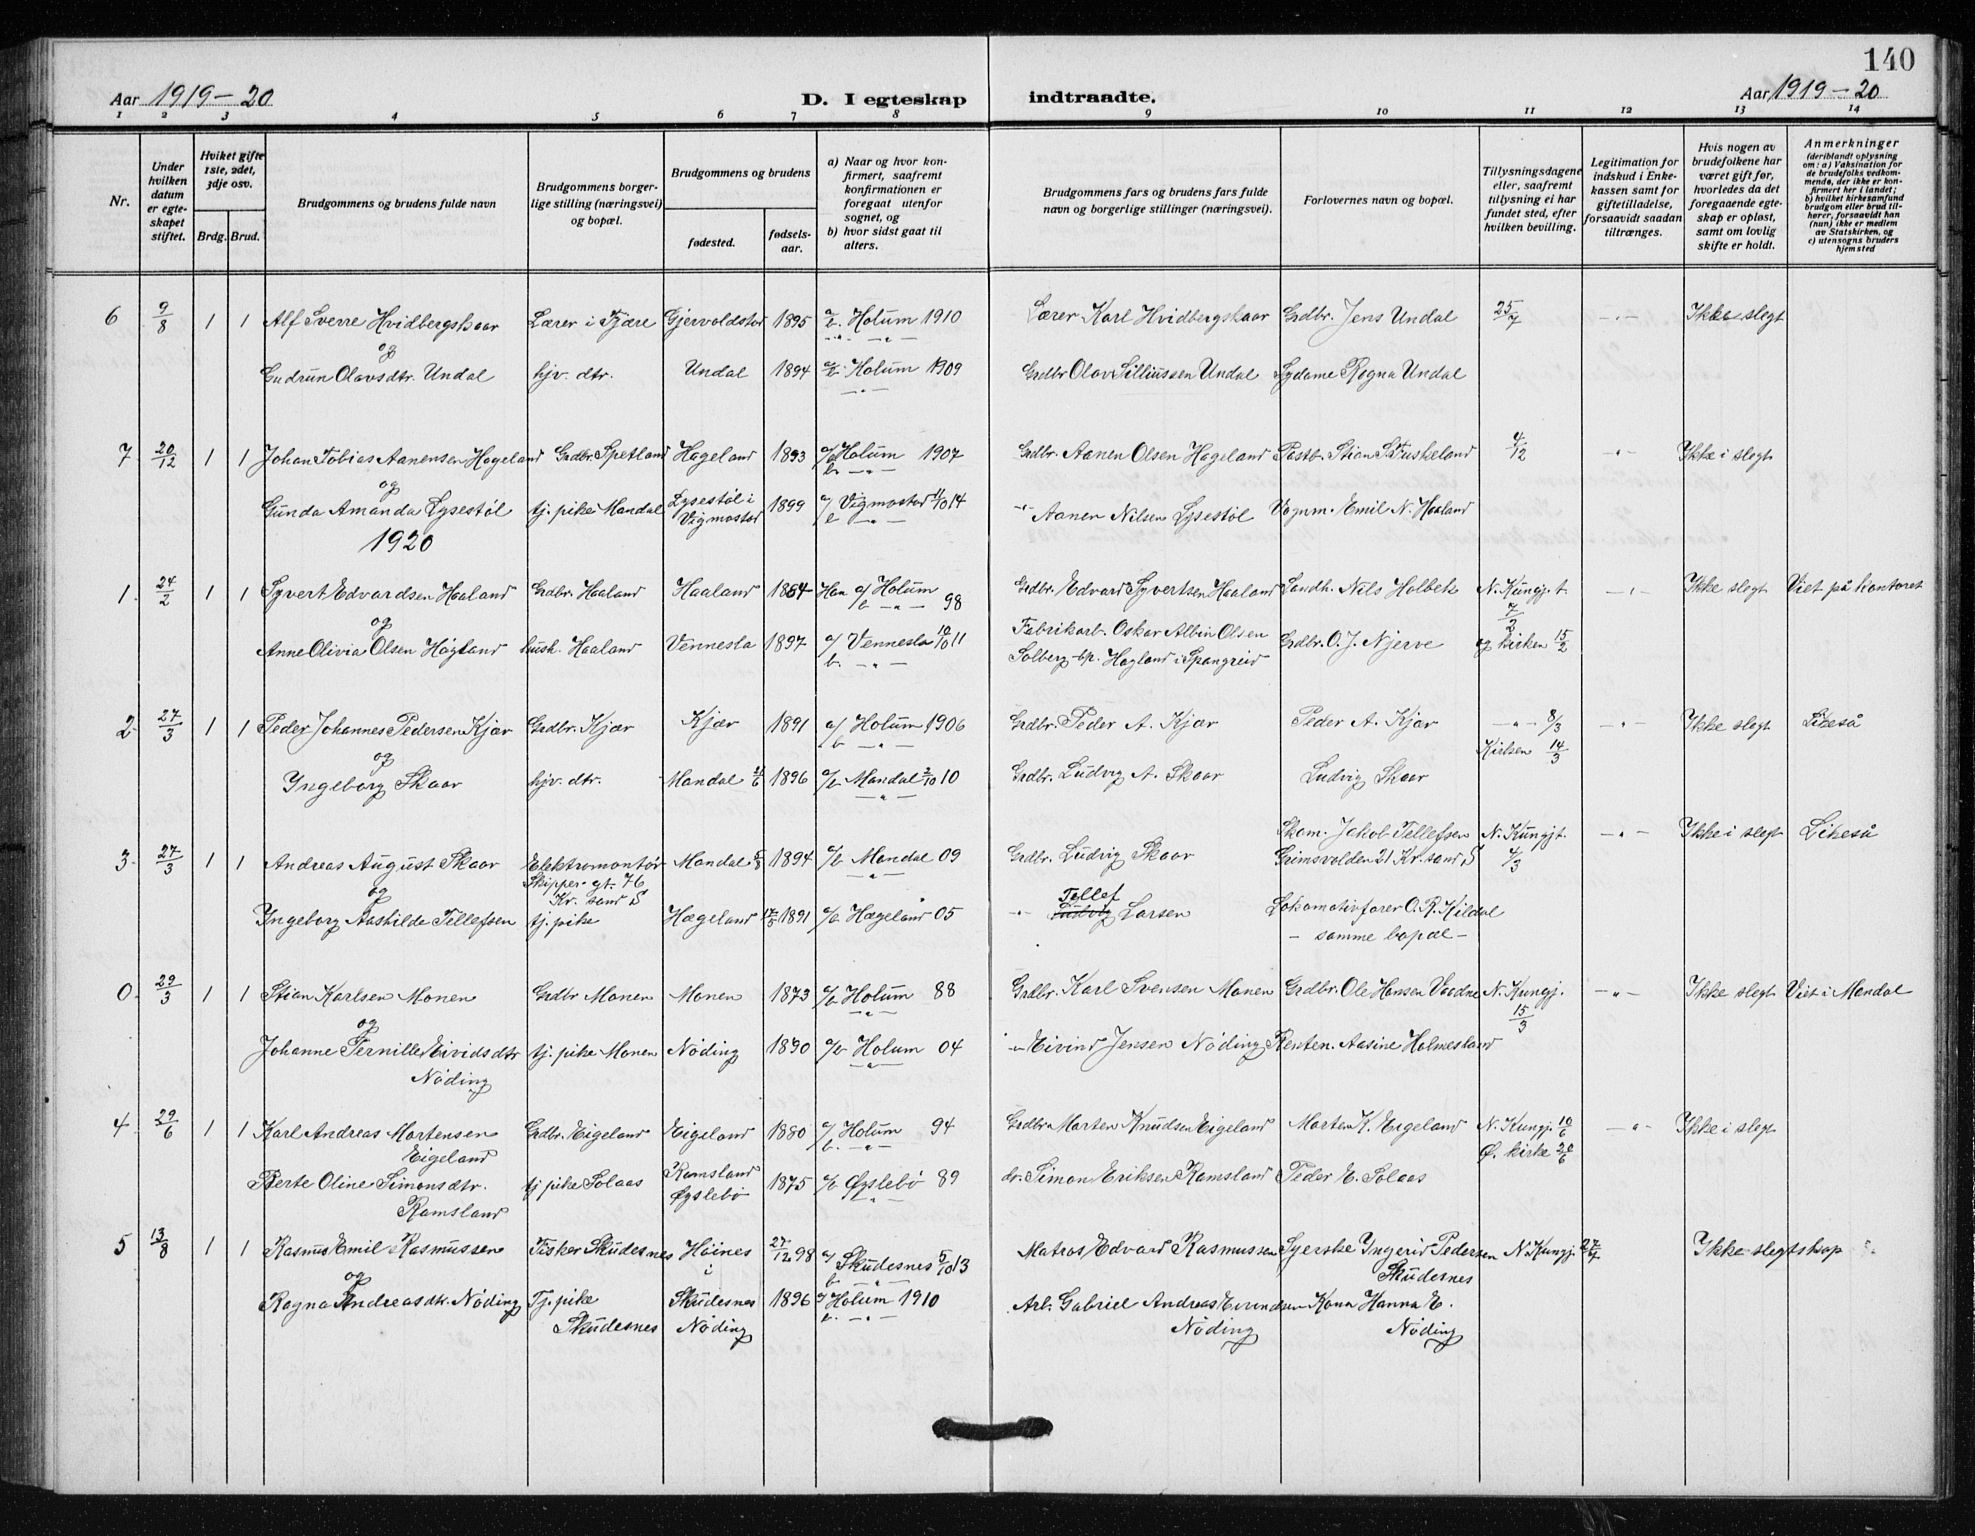 140
Aar 1919-20 D. I egteskap indtraadte. Aar 1919-20
1 2 3 4 5 6 7 8 9 10 11 12 13 14
Nr.
Under hvilken datum er egteskapet stiftet.
Hviket gifte 1ste, 2det, 3dje osv.
Brdg. Brud.
Brudgommens og brudens fulde navn
Brudgommens borgerlige stilling (næringsvei) og bopæl.
Brudgommens og brudens
fødested.
fødselsaar.
a) Naar og hvor konfirmert, saafremt konfirmationen er foregaat utenfor sognet, og
b) hvor sidst gaat til alters.
Brudgommens fars og brudens fars fulde navn og borgerlige stillinger (næringsvei).
Forlovernes navn og bopæl.
Tillysningsdagene eller, saafremt tillysning ei har fundet sted, efter hvilken bevilling.
Legitimation for indskud i Enkekassen samt for giftetilladelse, forsaavidt saadan tiltrænges.
Hvis nogen av brudefolkene har været gift før, hvorledes da det foregaaende egteskap er opløst, samt om lovlig skifte er holdt.
Anmerkninger (deriblandt oplysning om: a) Vaksination for de brudefolks vedkommende, der ikke er konfirmert her i landet; b) hvilket kirkesamfund brudgom eller brud tilhører, forsaavidt han (hun) ikke er medlem av Statskirken, og c) utensogns bruders hjemsted
6 9/8 1 1 Alf Sverre Hvidbergskaar Lærer i Fjære Gjervoldstad 1895 a/b. Holum 1910 Lærer Karl Hvidbergskaar Grdbr. Jens Undal 25/7 -"- Ikke slegt
og
Gudrun Olavsdtr. Undal hjv. dtr. Undal 1894 a/b Holum 1909 Grdbr Olav Silliussen Undal Sydame Ragna Undal
7 20/12 1 1 Johan Tobias Aanensen Hageland Grdbr. Spetland Hageland 1893 a/ Holum 1907 Grdbr. Aanen Olsen Hageland Postb. Stian S. Fuskeland 4/12 -"- Ikke i slegt
og b. -"-
Gunda Amanda Lysestøl tj. pike Mandal Lysestøl i Vigmostad 1899 a/ Vigmostad 11/10 14 -"- Aanen Nilsen Lysestøl Vognm. Emil N. Haaland
1920
1 24/2 1 1 Syvert Edvardsen Haaland Grdbr. Haaland Haaland 1864 Han a/ Holum 98 Grdbr. Edvard Syvertsen Haaland Landh. Nils Holbek N. Kungj. t. 7/2 -"- Ikke slegt Viet på kontoret
og
Anne Olivia Olsen Høgland hush. Haaland Vennesla 1897 a/ Vennesla 10/10 11 Fabrikarb. Oskar Albin Olsen Grdbr. O. J. Njerve og kirken 15/2
b. -"- Solberg bp. Hagland i Spangreid
2 27/3 1 1 Peder Johannes Pedersen Kjær Grdbr. Kjær Kjær 1891 a/ Holum 1906 Grdbr. Peder A. Kjær Peder A. Kjær -"- 8/3 -"- Ikke slegt Likeså
og b -"- Kirken 14/3
Ingeborg Skaar hjv. dtr. Mandal 1896 a/b Mandal 2/10 10 Grdbr. Ludvig A. Skaar Ludvig Skaar
3 27/3 1 1 Andreas August Skaar Elektromontør Mandal 1894 a/b Mandal 09 Grdbr. Ludvig Skaar Skom. Jakob Tellefsen N. Kungjt. 4/3 -"- Ikke i slegt Likeså
Skipper-gt. 76 Grimsvolden 21 Kr. sand S
og Kr. sand S
Ingeborg Aashilde Tellefsen tj. pike Hægeland 17/5 1891 a/b Hægeland 05 -"- Tellef Larsen Lokomotivfører O. R. Kildal
- samme bopæl -
0 29/3 1 1 Stian Karlsen Monen Grdbr Monen Monen 1873 a/b Holum 88 Grdbr. Karl Svensen Monen Grdbr. Ole Hansen Vaadne N. Kungj. 15/3 -"- Ikke slegt Viet i Mandal
og
Johanne Pernille Eividsdtr Nöding tj. pike Monen Nöding 1890 a/b Holum 04 -"- Eivind Jensen Nöding Renten. Aasine Holmesland
4 29/6 1 1 Karl Andreas Mortensen Eigeland Grdbr. Eigeland Eigeland 1880 a/ Holum 94 Grdbr. Morten Knudsen Eigeland Morten K. Eigeland N. Kungj. 10/6 -"- Ikke i slegt
b. -"- Ø. kirke 20/6
Berte Oline Simonsdtr. Ramsland tj pike Solaas Ramsland Øyslebö 1875 a/b Øyslebö 89 do. Simon Eriksen Ramsland Peder E. Solaas
5 13/8 1 1 Rasmus Emil Rasmussen Fisker Skudesnes Höines i Skudesnes 27/12 98 a/ Skudesnes 5/10 13 Matros Edvard Rasmussen Syerske Ingerid Pedersen Skudesnes N. Kungj. 27/7 Ikke slegtskap
og b. -"-
Ragna Andreasdtr. Nöding Tj. pike Skudesnes Nöding 1896 a/ Holum 1910 Arb. Gabriel Andreas Evendsen Nöding Kona Hanna E. Nöding
b. -"-